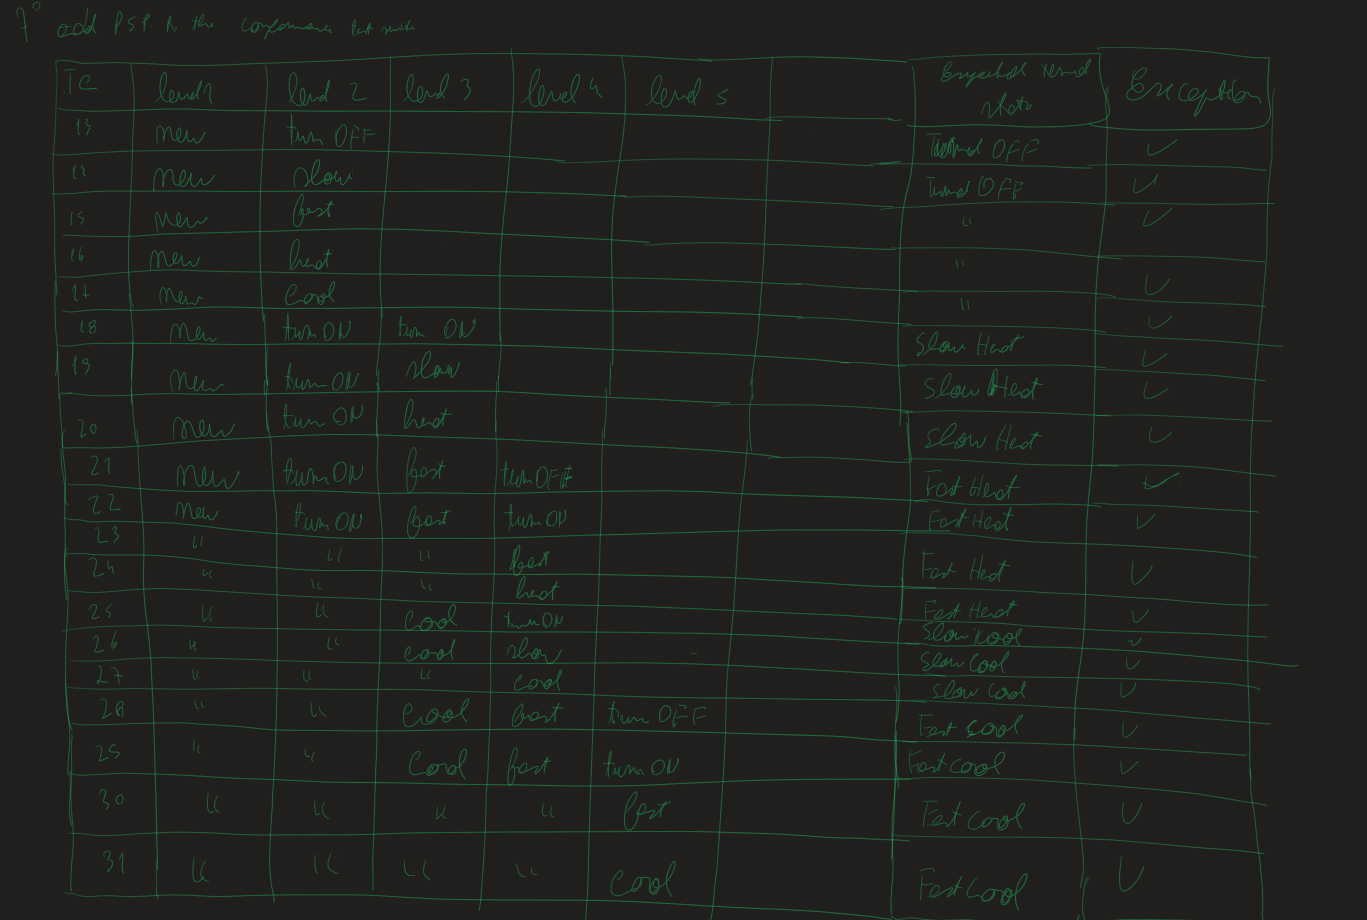 7° add PSP to the conformance test suite
TC level1 level 2 level 3 level 4 level 5 Expected resend state Exception
13 new turn OFF Turned OFF ✓
new slow Turned OFF ✓
15 new fast " ✓
16 new heat " ✓
17 new cool " ✓
18 new turn ON turn ON Slow Heat ✓
19 new turn ON slow Slow Heat ✓
20 new turn ON heat Slow Heat ✓
21 new turn ON fast turn OFF Fast Heat ✓
22 new turn ON fast turn ON Fast Heat ✓
23 " " " fast Fast Heat ✓
24 " " " heat Fast Heat ✓
25 " " cool turn ON Slow Kool ✓
26 " " cool slow Slow Cool ✓
27 " " " cool Slow Cool ✓
28 " " cool fast turn OFF Fast cool ✓
25 " " Cool fast turn ON Fast cool ✓
30 " " " " fast Fast cool ✓
31 " " " " cool Fast Cool ✓